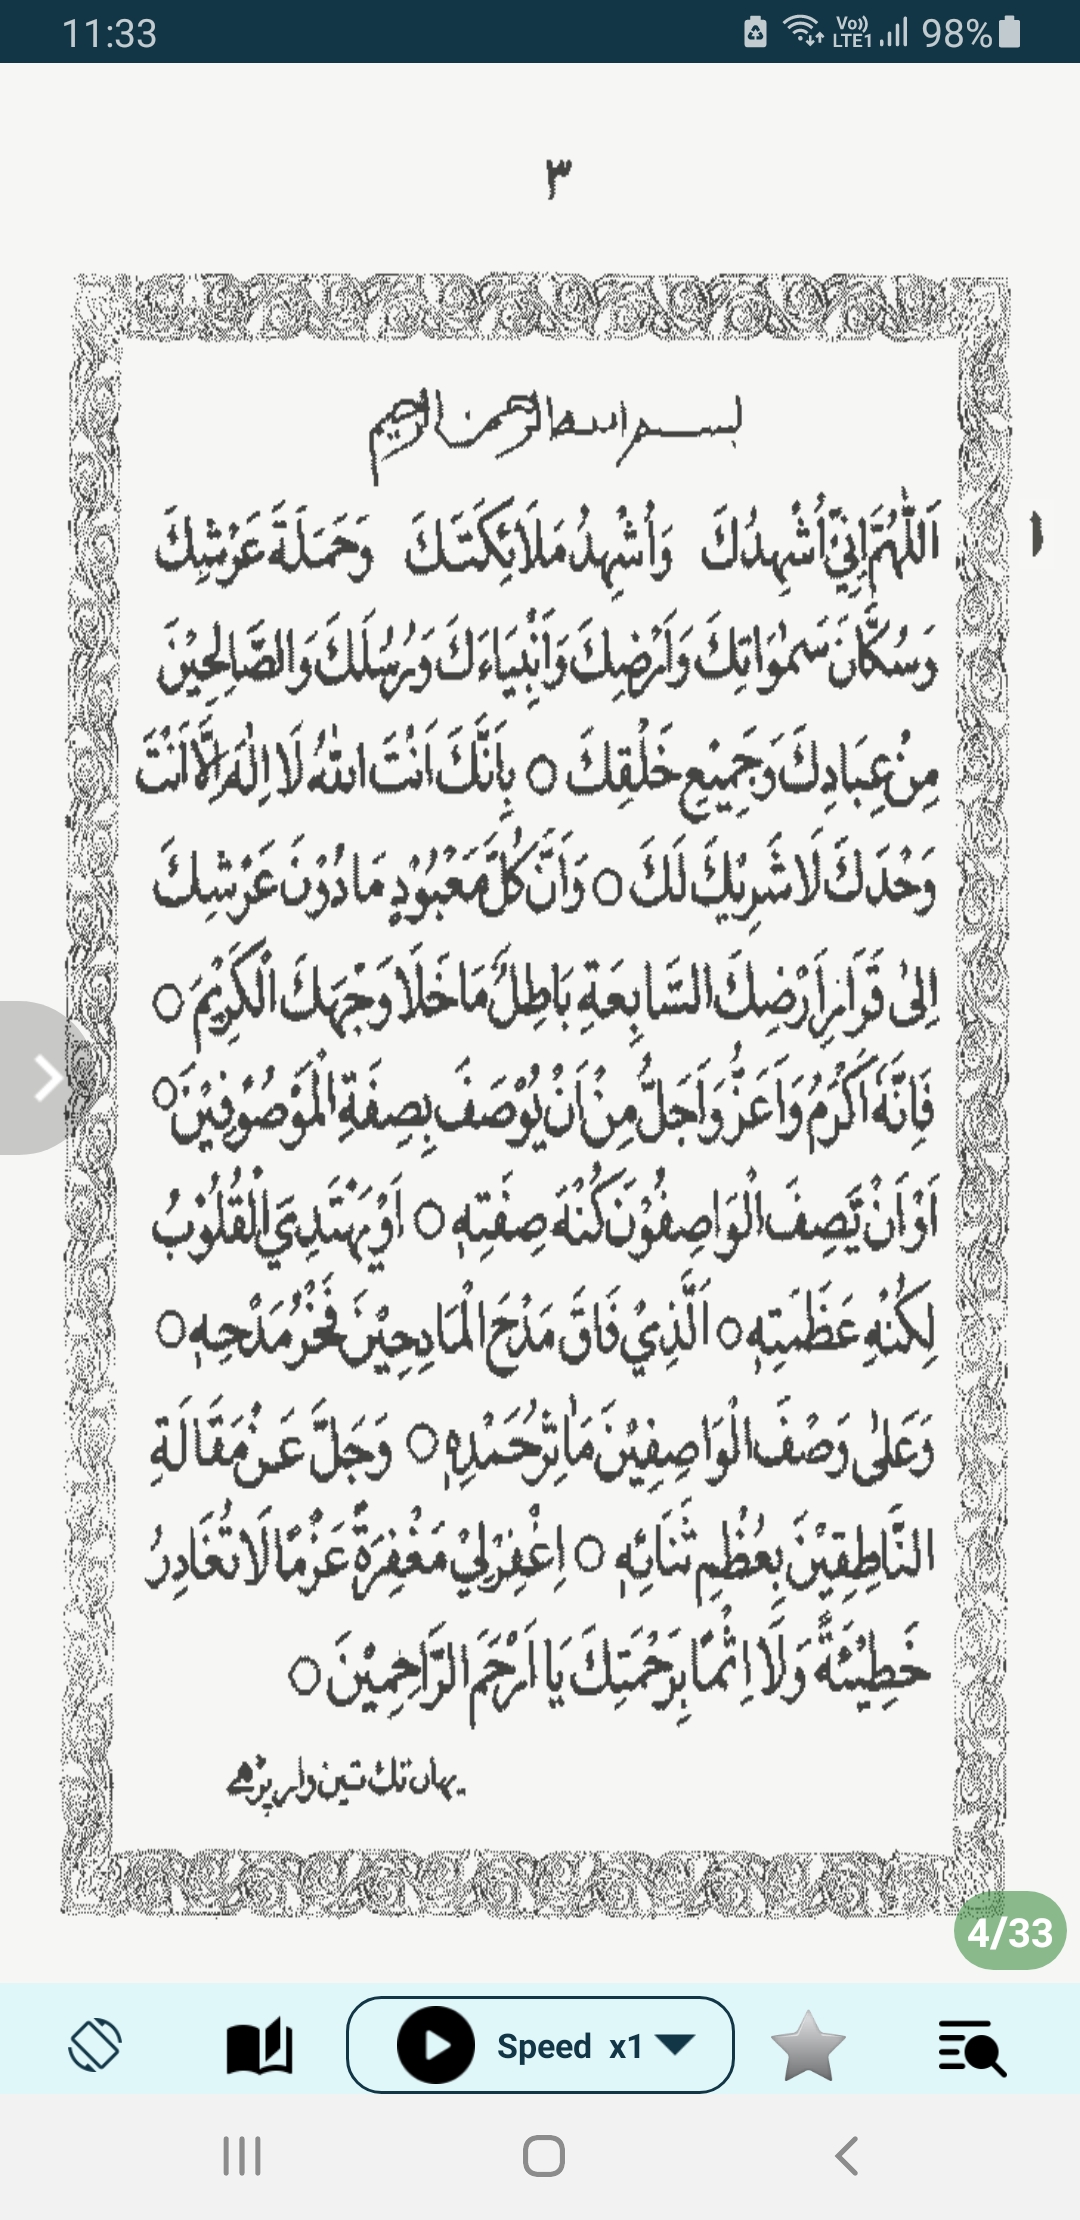 11:33
Vo)) LTE1 98%
٣
بسم الله الرحمن الرحيم
اَللّٰهُمَّ اِنِّيْ اُشْهِدُكَ وَاُشْهِدُ مَلَائِكَتَكَ وَحَمَلَةَ عَرْشِكَ
١
وَسُكَّانَ سَمٰوَاتِكَ وَاَرْضِكَ وَاَنْبِيَاءَكَ وَرُسُلَكَ وَالصَّالِحِيْنَ
مِنْ عِبَادِكَ وَجَمِيْعِ خَلْقِكَ ○ بِاَنَّكَ اَنْتَ اللهُ لَا اِلٰهَ اِلَّا اَنْتَ
وَحْدَكَ لَا شَرِيْكَ لَكَ ○ وَاَنَّ كُلَّ مَعْبُوْدٍ مَا دُوْنَ عَرْشِكَ
اِلىٰ قَرَارِ اَرْضِكَ السَّابِعَةِ بَاطِلٌ مَا خَلَا وَجْهَكَ الْكَرِيْمَ ○
فَاِنَّهُ اَكْرَمُ وَاَعَزُّ وَاَجَلُّ مِنْ اَنْ يُوْصَفَ بِصِفَةِ الْمَوْصُوْفِيْنَ ○
اَوْ اَنْ يَّصِفَ الْوَاصِفُوْنَ كُنْهَ صِفَتِهٖ ○ اَوْ يَهْتَدِيَ الْقُلُوْبُ
لِكُنْهِ عَظَمَتِهٖ ○ اَلَّذِيْ فَاقَ مَدْحَ الْمَادِحِيْنَ فَخْرُ مَدْحِهٖ ○
وَعَلىٰ وَصْفَ الْوَاصِفِيْنَ مَاٰثِرُ حَمْدِهٖ ○ وَجَلَّ عَنْ مَقَالَةِ
النَّاطِقِيْنَ بِعُظْمِ ثَنَائِهٖ ○ اِغْفِرْ لِيْ مَغْفِرَةً عَزْمًا لَا تُغَادِرُ
خَطِيْئَةً وَلَا اِثْمًا بِرَحْمَتِكَ يَا اَرْحَمَ الرَّاحِمِيْنَ ○
یہاں تك تین وار پڑھے
4/33
Speed x1